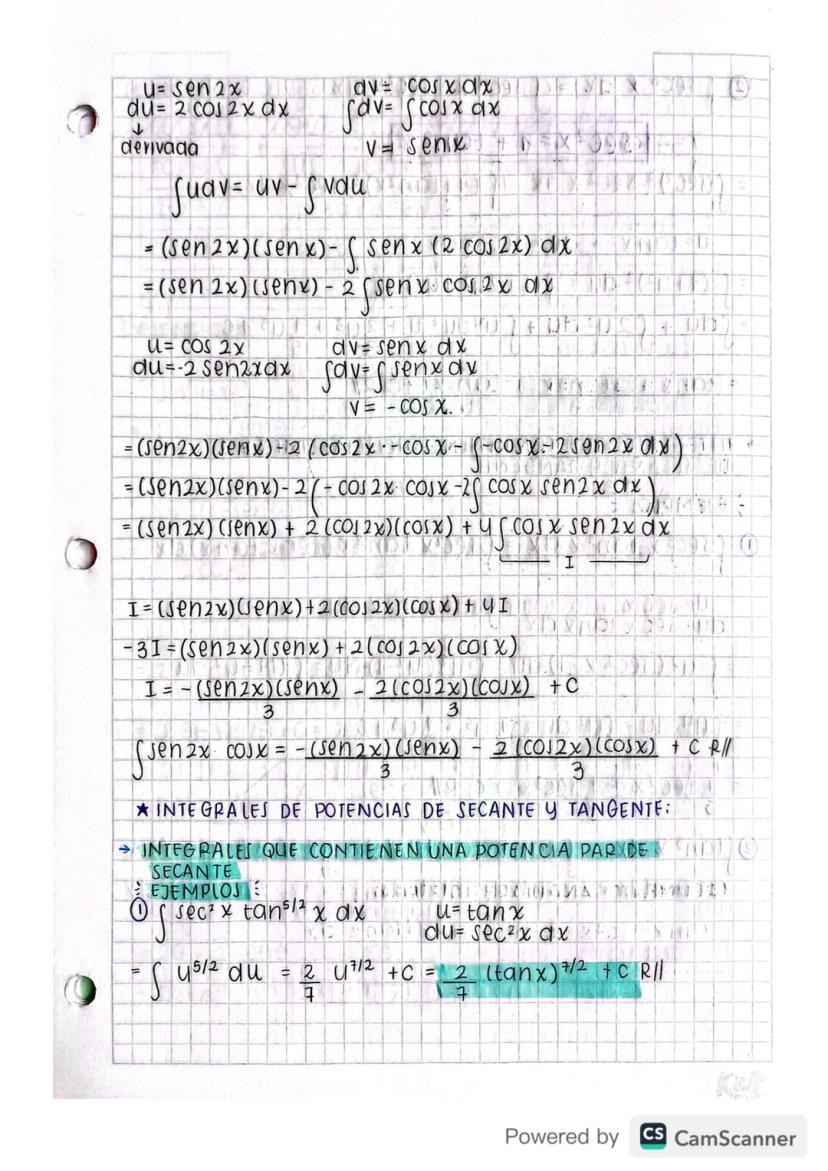 u= sen 2x dv= cos x dx
du= 2 cos 2x dx ∫dv= ∫cos x dx
↓
derivada v= sen x
∫udv= uv - ∫vdu
= (sen 2x)(sen x) - ∫ sen x (2 cos 2x) dx
= (sen 2x)(sen x) - 2 ∫ sen x · cos 2x dx
u= cos 2x dv= sen x dx
du=-2 sen2xdx ∫dv=∫ senx dx
v= - cos x.
= (sen2x)(senx) -2 (cos2x · -cosx - ∫-cosx · -2 sen2x dx)
= (sen2x)(senx) - 2 (- cos 2x · cosx -2∫ cosx sen2x dx)
= (sen2x)(senx) + 2 (cos2x)(cosx) + 4∫ cos x sen2x dx
I
I = (sen2x)(senx)+2(cos2x)(cosx) + 4I
-3I = (sen2x)(senx) + 2(cos2x)(cosx)
I = - (sen2x)(senx)/3 - 2(cos2x)(cosx)/3 + C
∫sen2x · cosx = -(sen2x)(senx)/3 - 2(cos2x)(cosx)/3 + C R//
★ INTEGRALES DE POTENCIAS DE SECANTE Y TANGENTE:
→ INTEGRALES QUE CONTIENEN UNA POTENCIA PAR DE
SECANTE
EJEMPLOS
① ∫ sec² x tan^5/2 x dx u= tan x
du= sec² x dx
= ∫ u^5/2 du = 2/7 u^7/2 + C = 2/7 (tan x)^7/2 + C R//
Powered by CS CamScanner